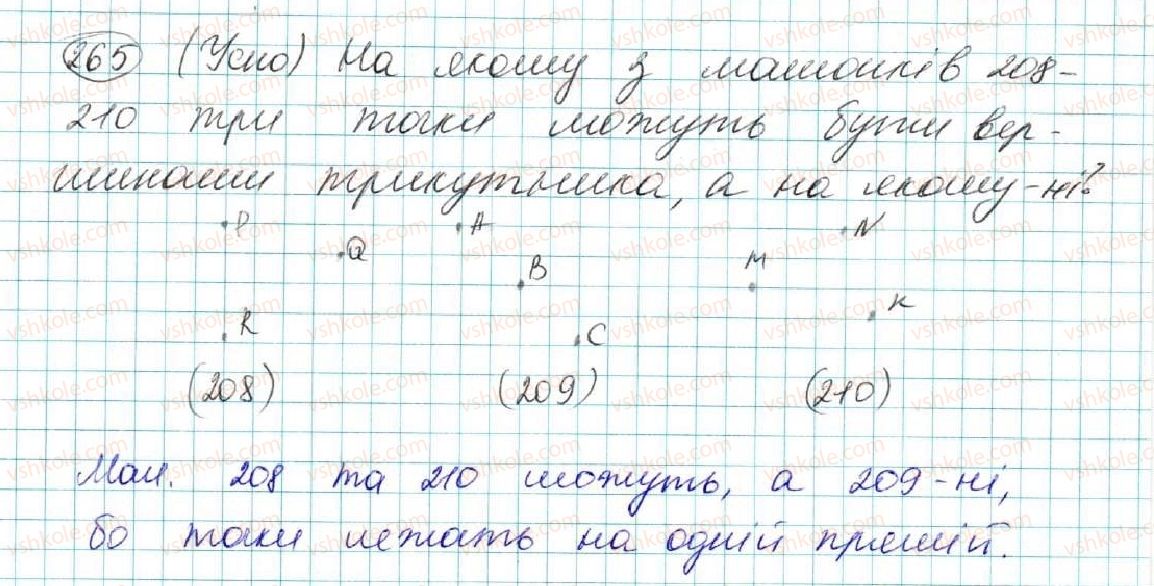 265 (Усно) На якому з малюнків 208-
210 три точки можуть бути вер-
шинами трикутника, а на якому-ні?
P A N
Q B M
R C K
(208) (209) (210)
Мал. 208 та 210 можуть, а 209-ні,
бо точки лежать на одній прямій.